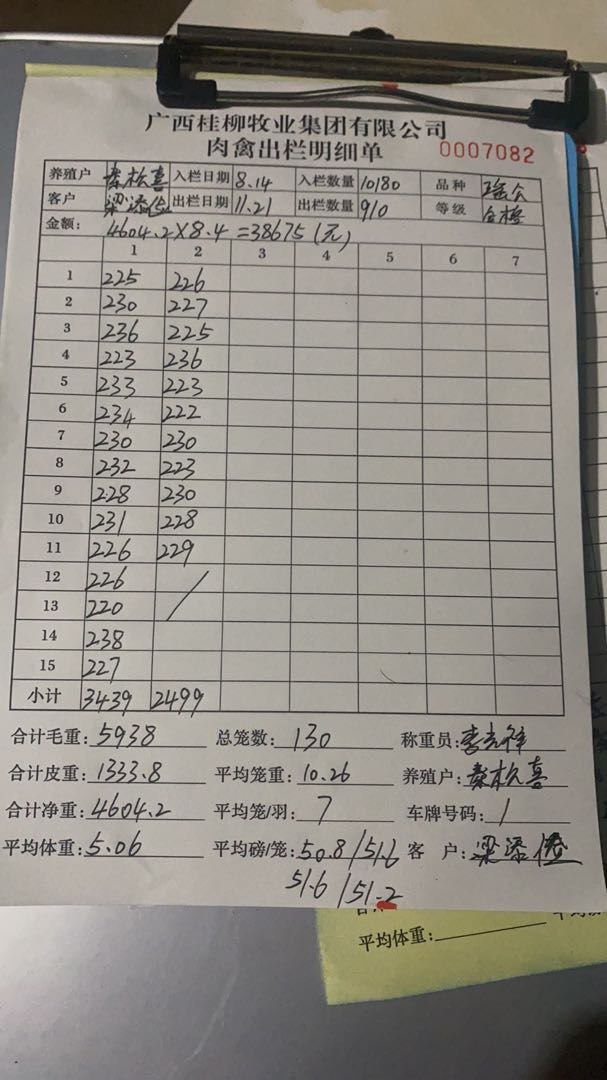 广西桂柳牧业集团有限公司
肉禽出栏明细单 0007082
养殖户 秦松喜 入栏日期 8.14 入栏数量 10180 品种 瑶公
客户 梁添 出栏日期 11.21 出栏数量 910 等级
金额: 4604.2×8.4=38675(元)
1 2 3 4 5 6 7
1 225 226
2 230 227
3 236 225
4 223 236
5 233 223
6 234 222
7 230 230
8 232 223
9 228 230
10 231 228
11 226 229
12 226 /
13 220
14 238
15 227
小计 3439 2499
合计毛重: 5938 总笼数: 130 称重员: 李
合计皮重: 1333.8 平均笼重: 10.26 养殖户: 秦松喜
合计净重: 4604.2 平均笼/羽: 7 车牌号码: /
平均体重: 5.06 平均磅/笼: 50.8/51.6 客 户: 梁添
51.6/51.2
平均体重: